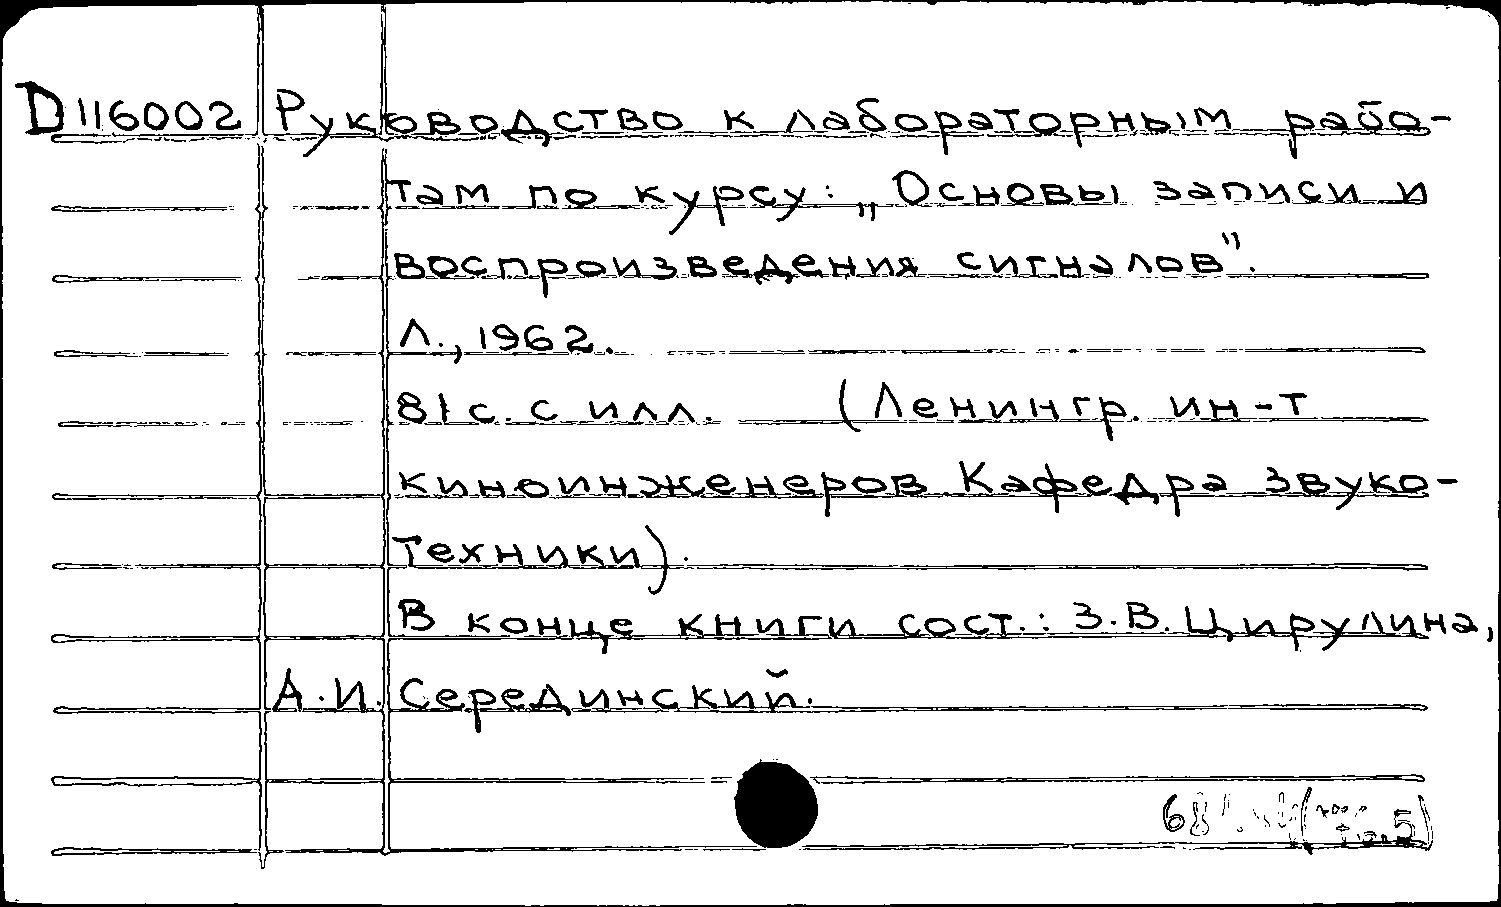 D 116002 Руководство к лабораторным рабо-
там по курсу: „Основы записи и
воспроизведения сигналов".
Л., 1962.
81 с. с илл. (Ленингр. ин-т
киноинженеров Кафедра звуко-
техники).
В конце книги сост.: З.В. Цирулина,
А.И. Серединский.